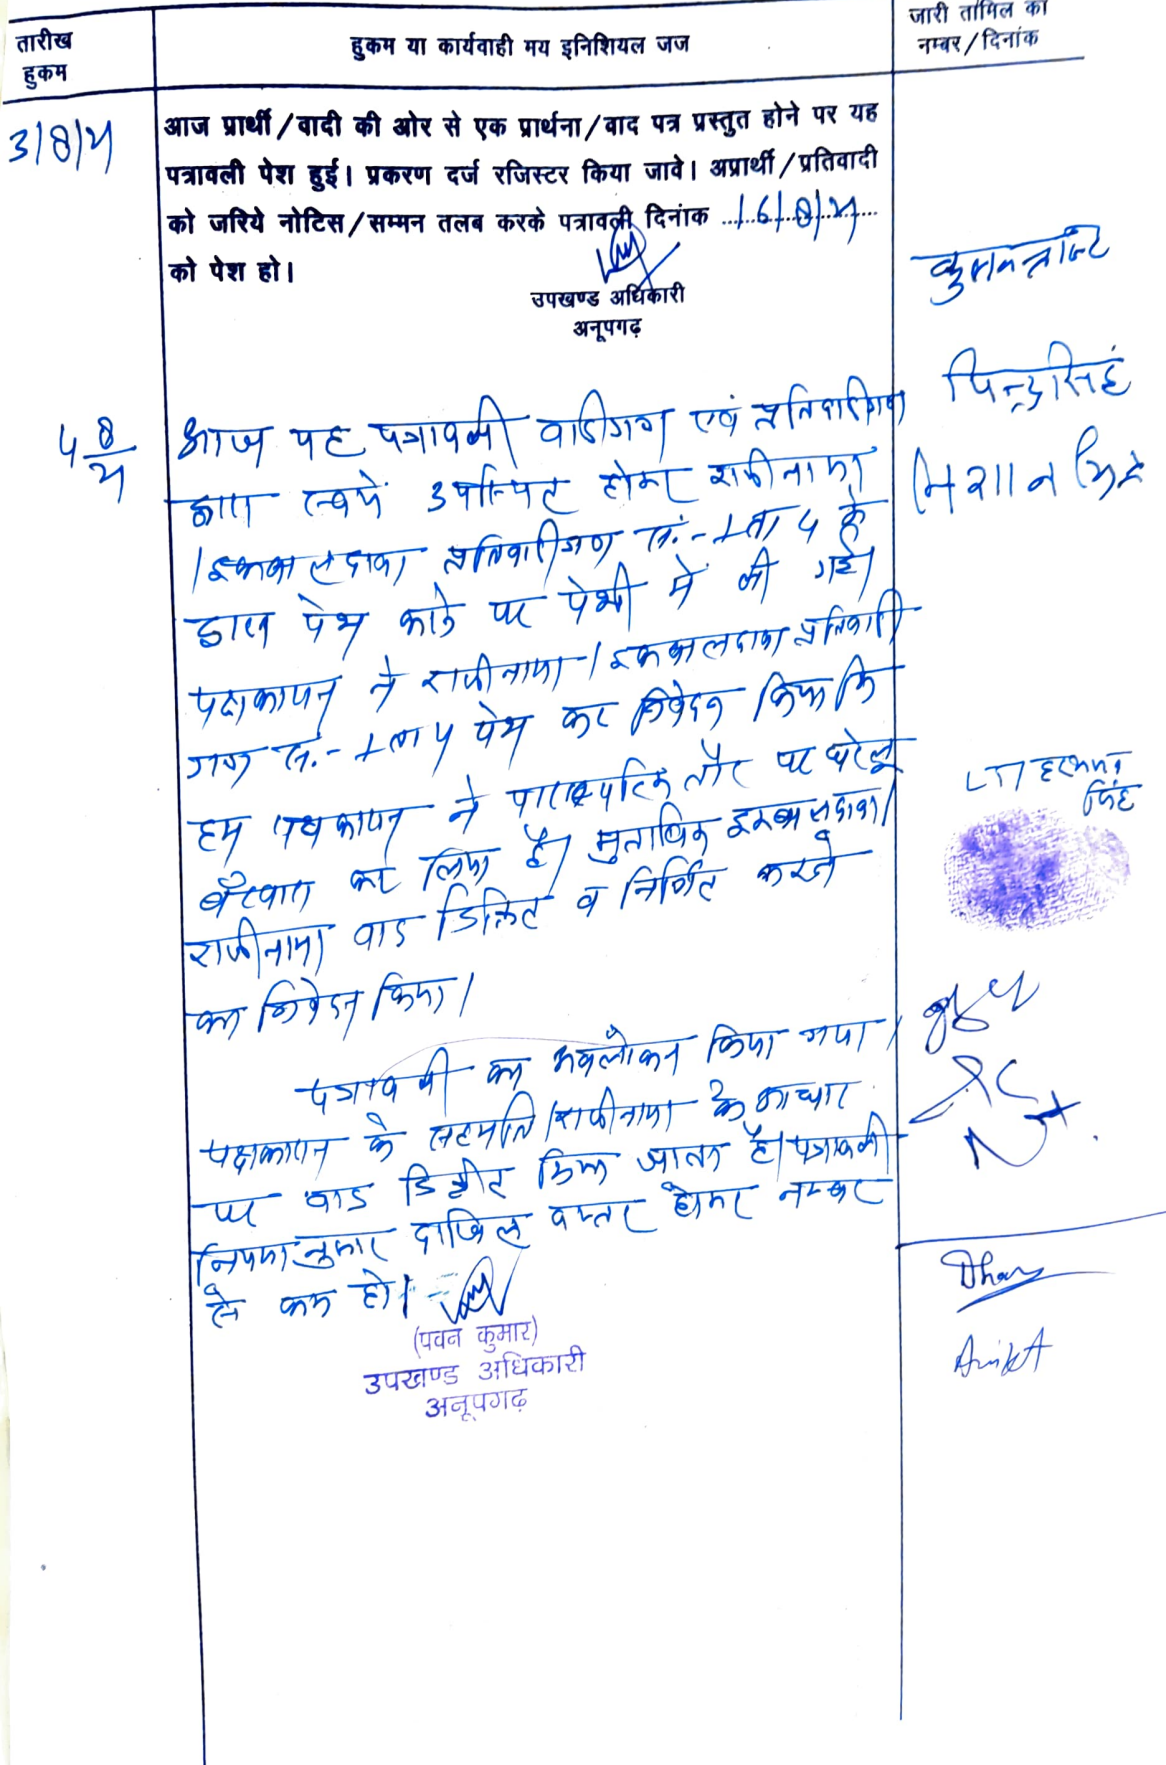 जारी तामिल का
तारीख
हुकम या कार्यवाही मय इनिशियल जज
नम्बर/दिनांक
हुकम
3/8/21
आज प्रार्थी/वादी की ओर से एक प्रार्थना/वाद पत्र प्रस्तुत होने पर यह
पत्रावली पेश हुई। प्रकरण दर्ज रजिस्टर किया जावे। अप्रार्थी/प्रतिवादी
को जरिये नोटिस/सम्मन तलब करके पत्रावली दिनांक 16/8/21
को पेश हो।
उपखण्ड अधिकारी
अनूपगढ़
आज यह पत्रावली वादीगण एवं प्रतिवादीगण
द्वारा स्वयं उपस्थित होकर राजीनामा
/इकबालदावा प्रतिवादीगण सं.-1 ता 4 के
द्वारा पेश करने पर पेशी में ली गई।
पक्षकारान ने राजीनामा/इकबालदावा प्रतिवादी
गण सं.-1 ता 4 पेश कर निवेदन किया कि
हम पक्षकारान ने पारस्परिक तौर पर घरेलू
बंटवारा कर लिया है। मुताबिक इकबालदावा/
राजीनामा वाद डिक्रीत व निर्णित करने
का निवेदन किया।
पत्रावली का अवलोकन किया गया।
पक्षकारान के सहमति/राजीनामा के आधार
पर वाद डिक्रीत किया जाता है। पत्रावली
नियमानुसार दाखिल दफ्तर होकर नम्बर
से कम हो।
(पवन कुमार)
उपखण्ड अधिकारी
अनूपगढ़
निशान सिंह
LTI
सिंह
Ankit